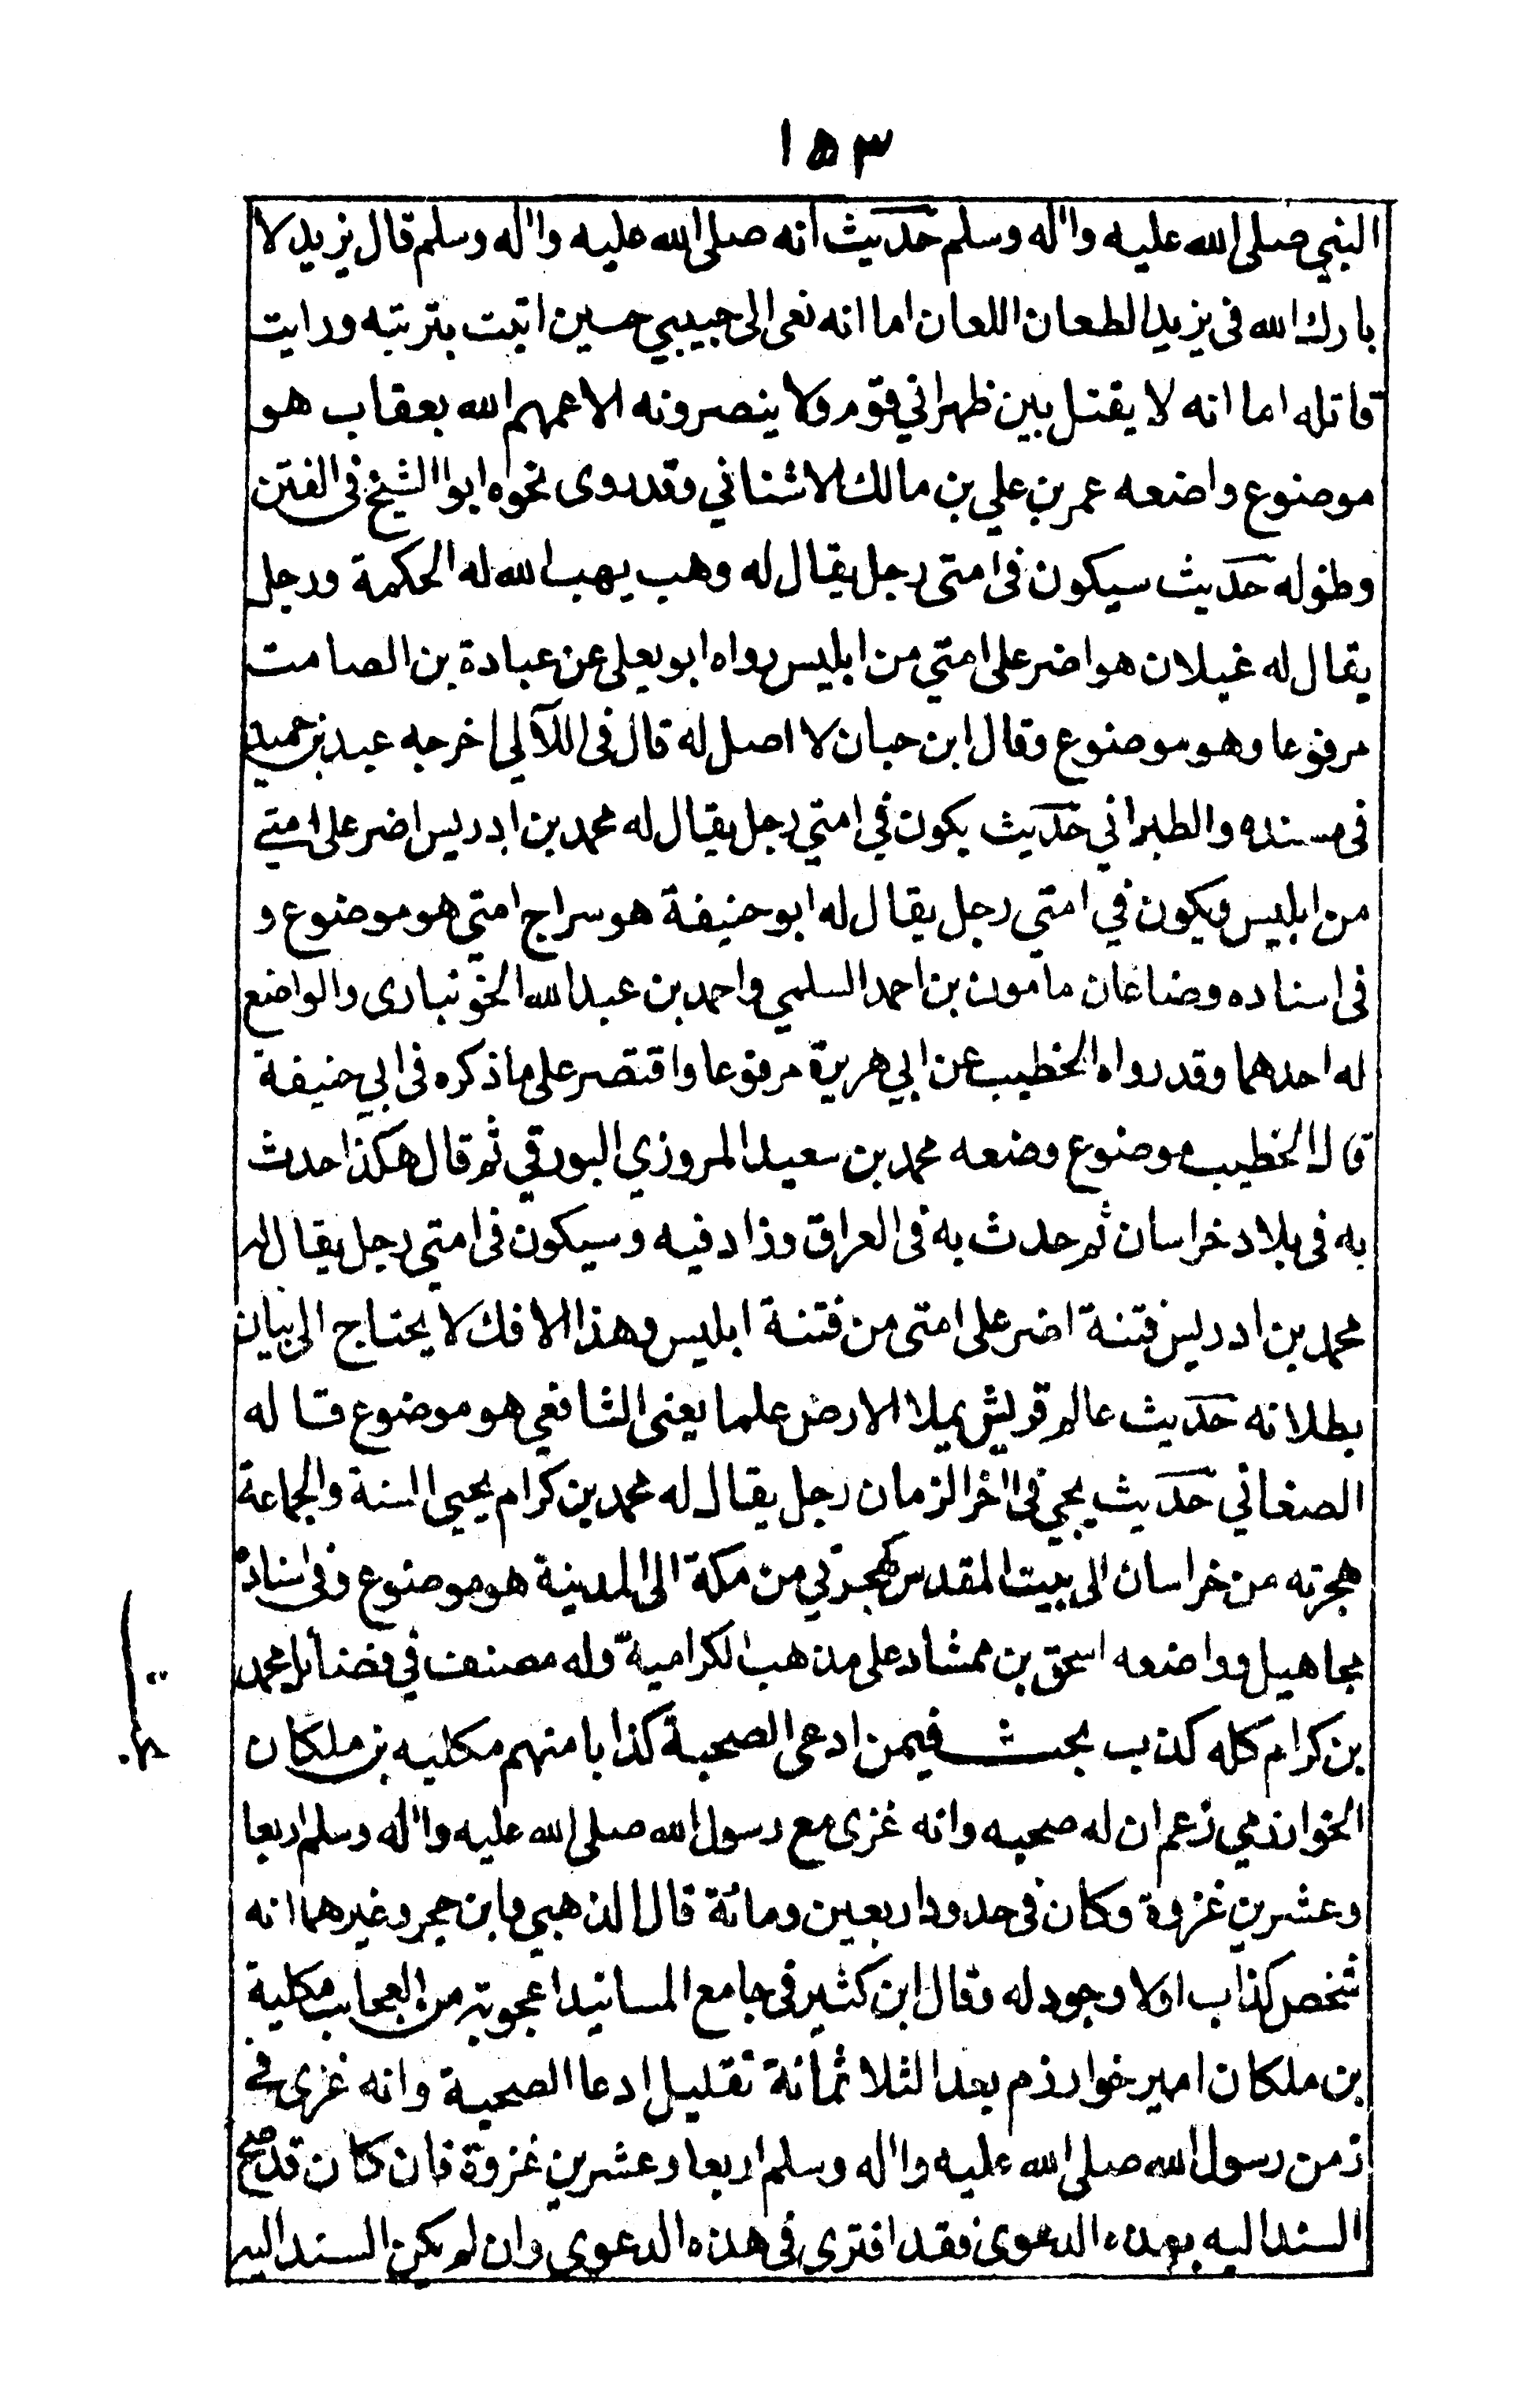 ١٥٣
النبي صلى الله عليه واٰله وسلم حديث انه صلى الله عليه واٰله وسلم قال يزيد لا
بارك الله في يزيد الطعان اللعان اما انه نعى الى حبيبي حسين اتيت بتربته ورايت
قاتله اما انه لا يقتل بين ظهراني قوم ولا ينصرونه الا عمهم الله بعقاب هو
موضوع واضعه عمر بن علي بن مالك الاشناني وقد روى نحوه ابوا الشيخ في الفتن
وطوله حديث سيكون في امتى رجل يقال له وهب يهب الله له الحكمة ورجل
يقال له غيلان هو اضر على امتي من ابليس رواه ابو يعلى عن عبادة بن الصامت
مرفوعا وهو موضوع وقال ابن حبان لا اصل له قال في اللآلي اخرجه عبد بن حميد
في مسنده والطبراني حديث يكون في امتي رجل يقال له محمد بن ادريس اضر على امتي
من ابليس ويكون في امتى رجل يقال له ابو حنيفة هو سراج امتي هو موضوع و
في اسناده وضاعان مامون بن احمد السلمي واحمد بن عبد الله الخونبارى والواضع
له احدهما وقد رواه الخطيب عن ابي هريرة مرفوعا واقتصر على ما ذكره في ابي حنيفة
قال الخطيب موضوع وضعه محمد بن سعيد المروزي البورقي ثم قال هكذا حدث
به في بلاد خراسان ثم حدث به في العراق وزاد فيه وسيكون في امتي رجل يقال له
محمد بن ادريس فتنة اضر على امتى من فتنة ابليس وهذا الافك لا يحتاج الى بيان
بطلانه حديث عالم قريش يملا الارض علما يعنى الشافعي هو موضوع قاله
الصغاني حديث يجي في اٰخر الزمان رجل يقال له محمد بن كرام يحيى السنة والجماعة
هجرته من خراسان الى بيت المقدس كهجرتي من مكة الى المدينة هو موضوع وفي اسناده
مجاهيل وواضعه اسحق بن ممشاد على مذهب الكرامية وله مصنف في فضائل محمد
بن كرام كله كذب بحث فيمن ادعى الصحبة كذابا منهم مكلبه بن ملكان
الخوارزمي زعم ان له صحبه وانه غزى مع رسول الله صلى الله عليه واٰله وسلم اربعا
وعشرين غزوة وكان في حدود اربعين ومائة قال الذهبي وابن حجر وغيرهما انه
شخص كذاب او لا وجود له وقال ابن كثير في جامع المسانيد اعجوبة من العجايب مكلبة
بن ملكان امير خوارزم بعد الثلاثمائة بقليل ادعا الصحبة وانه غزى في
زمن رسول الله صلى الله عليه واٰله وسلم اربعا وعشرين غزوة فان كان قد صح
السند اليه بهذه الدعوى فقد افترى في هذه الدعوى وان لم يكن السند اليه